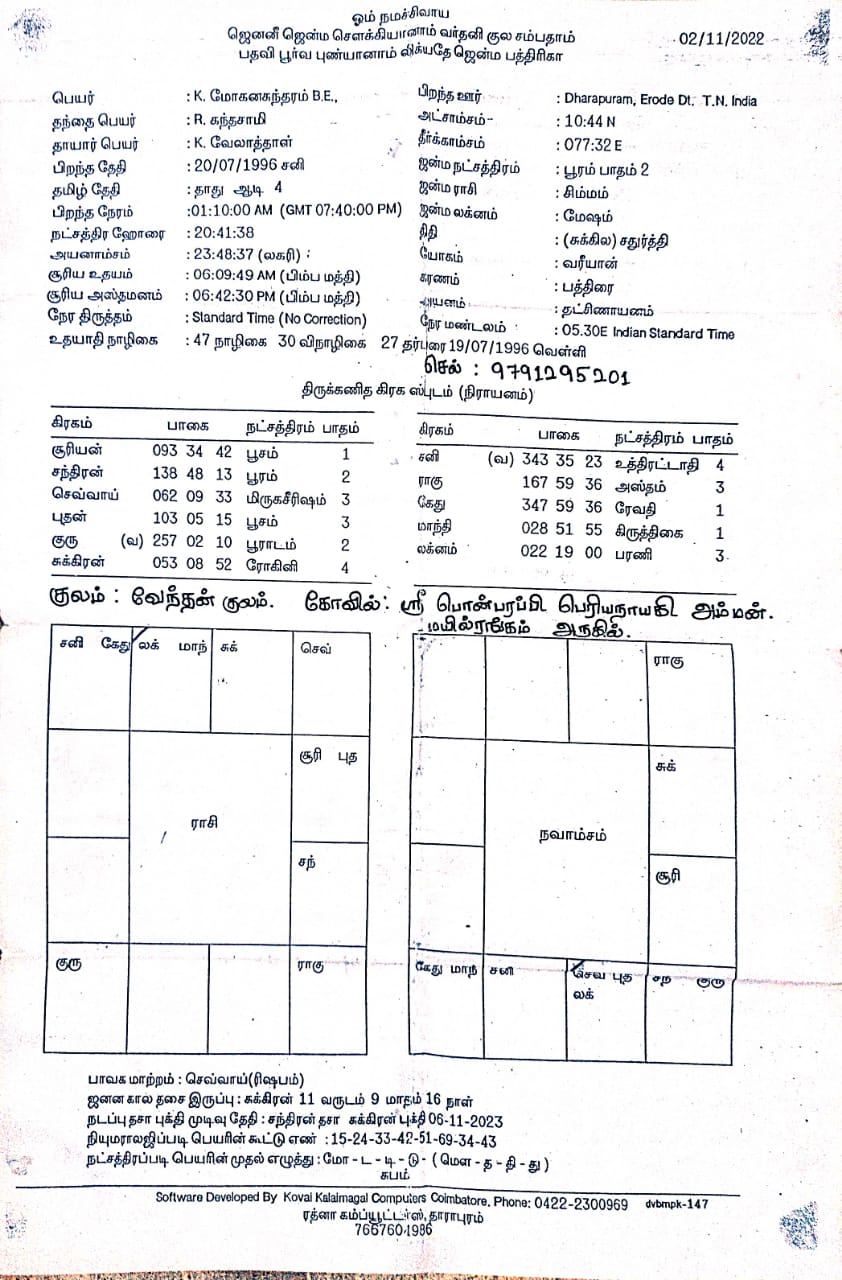 ஓம் நமச்சிவாய
ஜெனனீ ஜென்ம சௌக்கியானாம் வர்தனி குல சம்பதாம்
பதவி பூர்வ புண்யானாம் லிக்யதே ஜென்ம பத்திரிகா
02/11/2022
பெயர் : K. மோகனசுந்தரம் B.E.,
தந்தை பெயர் : R. கந்தசாமி
தாயார் பெயர் : K. வேலாத்தாள்
பிறந்த தேதி : 20/07/1996 சனி
தமிழ் தேதி : தாது ஆடி 4
பிறந்த நேரம் :01:10:00 AM (GMT 07:40:00 PM)
நட்சத்திர ஹோரை : 20:41:38
அயனாம்சம் : 23:48:37 (லகரி) :
சூரிய உதயம் : 06:09:49 AM (பிம்ப மத்தி)
சூரிய அஸ்தமனம் : 06:42:30 PM (பிம்ப மத்தி)
நேர திருத்தம் : Standard Time (No Correction)
உதயாதி நாழிகை : 47 நாழிகை 30 விநாழிகை 27 தர்பரை 19/07/1996 வெள்ளி
பிறந்த ஊர் : Dharapuram, Erode Dt. T.N. India
அட்சாம்சம் : 10:44 N
தீர்க்காம்சம் : 077:32 E
ஜன்ம நட்சத்திரம் : பூரம் பாதம் 2
ஜன்ம ராசி : சிம்மம்
ஜன்ம லக்னம் : மேஷம்
திதி : (சுக்கில) சதுர்த்தி
யோகம் : வரீயான்
கரணம் : பத்திரை
அயனம் : தட்சிணாயனம்
நேர மண்டலம் : 05.30E Indian Standard Time
செல் : 9791295201
திருக்கணித கிரக ஸ்புடம் (நிராயனம்)
கிரகம் பாகை நட்சத்திரம் பாதம்
சூரியன் 093 34 42 பூசம் 1
சந்திரன் 138 48 13 பூரம் 2
செவ்வாய் 062 09 33 மிருகசீரிஷம் 3
புதன் 103 05 15 பூசம் 3
குரு (வ) 257 02 10 பூராடம் 2
சுக்கிரன் 053 08 52 ரோகினி 4
கிரகம் பாகை நட்சத்திரம் பாதம்
சனி (வ) 343 35 23 உத்திரட்டாதி 4
ராகு 167 59 36 அஸ்தம் 3
கேது 347 59 36 ரேவதி 1
மாந்தி 028 51 55 கிருத்திகை 1
லக்னம் 022 19 00 பரணி 3
குலம் : வேந்தன் குலம். கோவில் : ஸ்ரீ பொன்பரப்பி பெரியநாயகி அம்மன்.
மயில்ரங்கம் அருகில்.
சனி கேது லக் மாந் சுக் செவ்
சூரி புத
ராசி
சந்
குரு ராகு
ராகு
சுக்
நவாம்சம்
சூரி
கேது மாந் சனி செவ் புத சந் குரு
லக்
பாவக மாற்றம் : செவ்வாய்(ரிஷபம்)
ஜனன கால தசை இருப்பு : சுக்கிரன் 11 வருடம் 9 மாதம் 16 நாள்
நடப்பு தசா புக்தி முடிவு தேதி : சந்திரன் தசா சுக்கிரன் புக்தி 06-11-2023
நியுமராலஜிப்படி பெயரின் கூட்டு எண் : 15-24-33-42-51-69-34-43
நட்சத்திரப்படி பெயரின் முதல் எழுத்து : மோ - ட - டி - டு - ( மௌ - த - தி - து )
சுபம்
Software Developed By Kovai Kalaimagal Computers Coimbatore, Phone: 0422-2300969 dvbmpk-147
ரத்னா கம்ப்யூட்டர்ஸ், தாராபுரம்